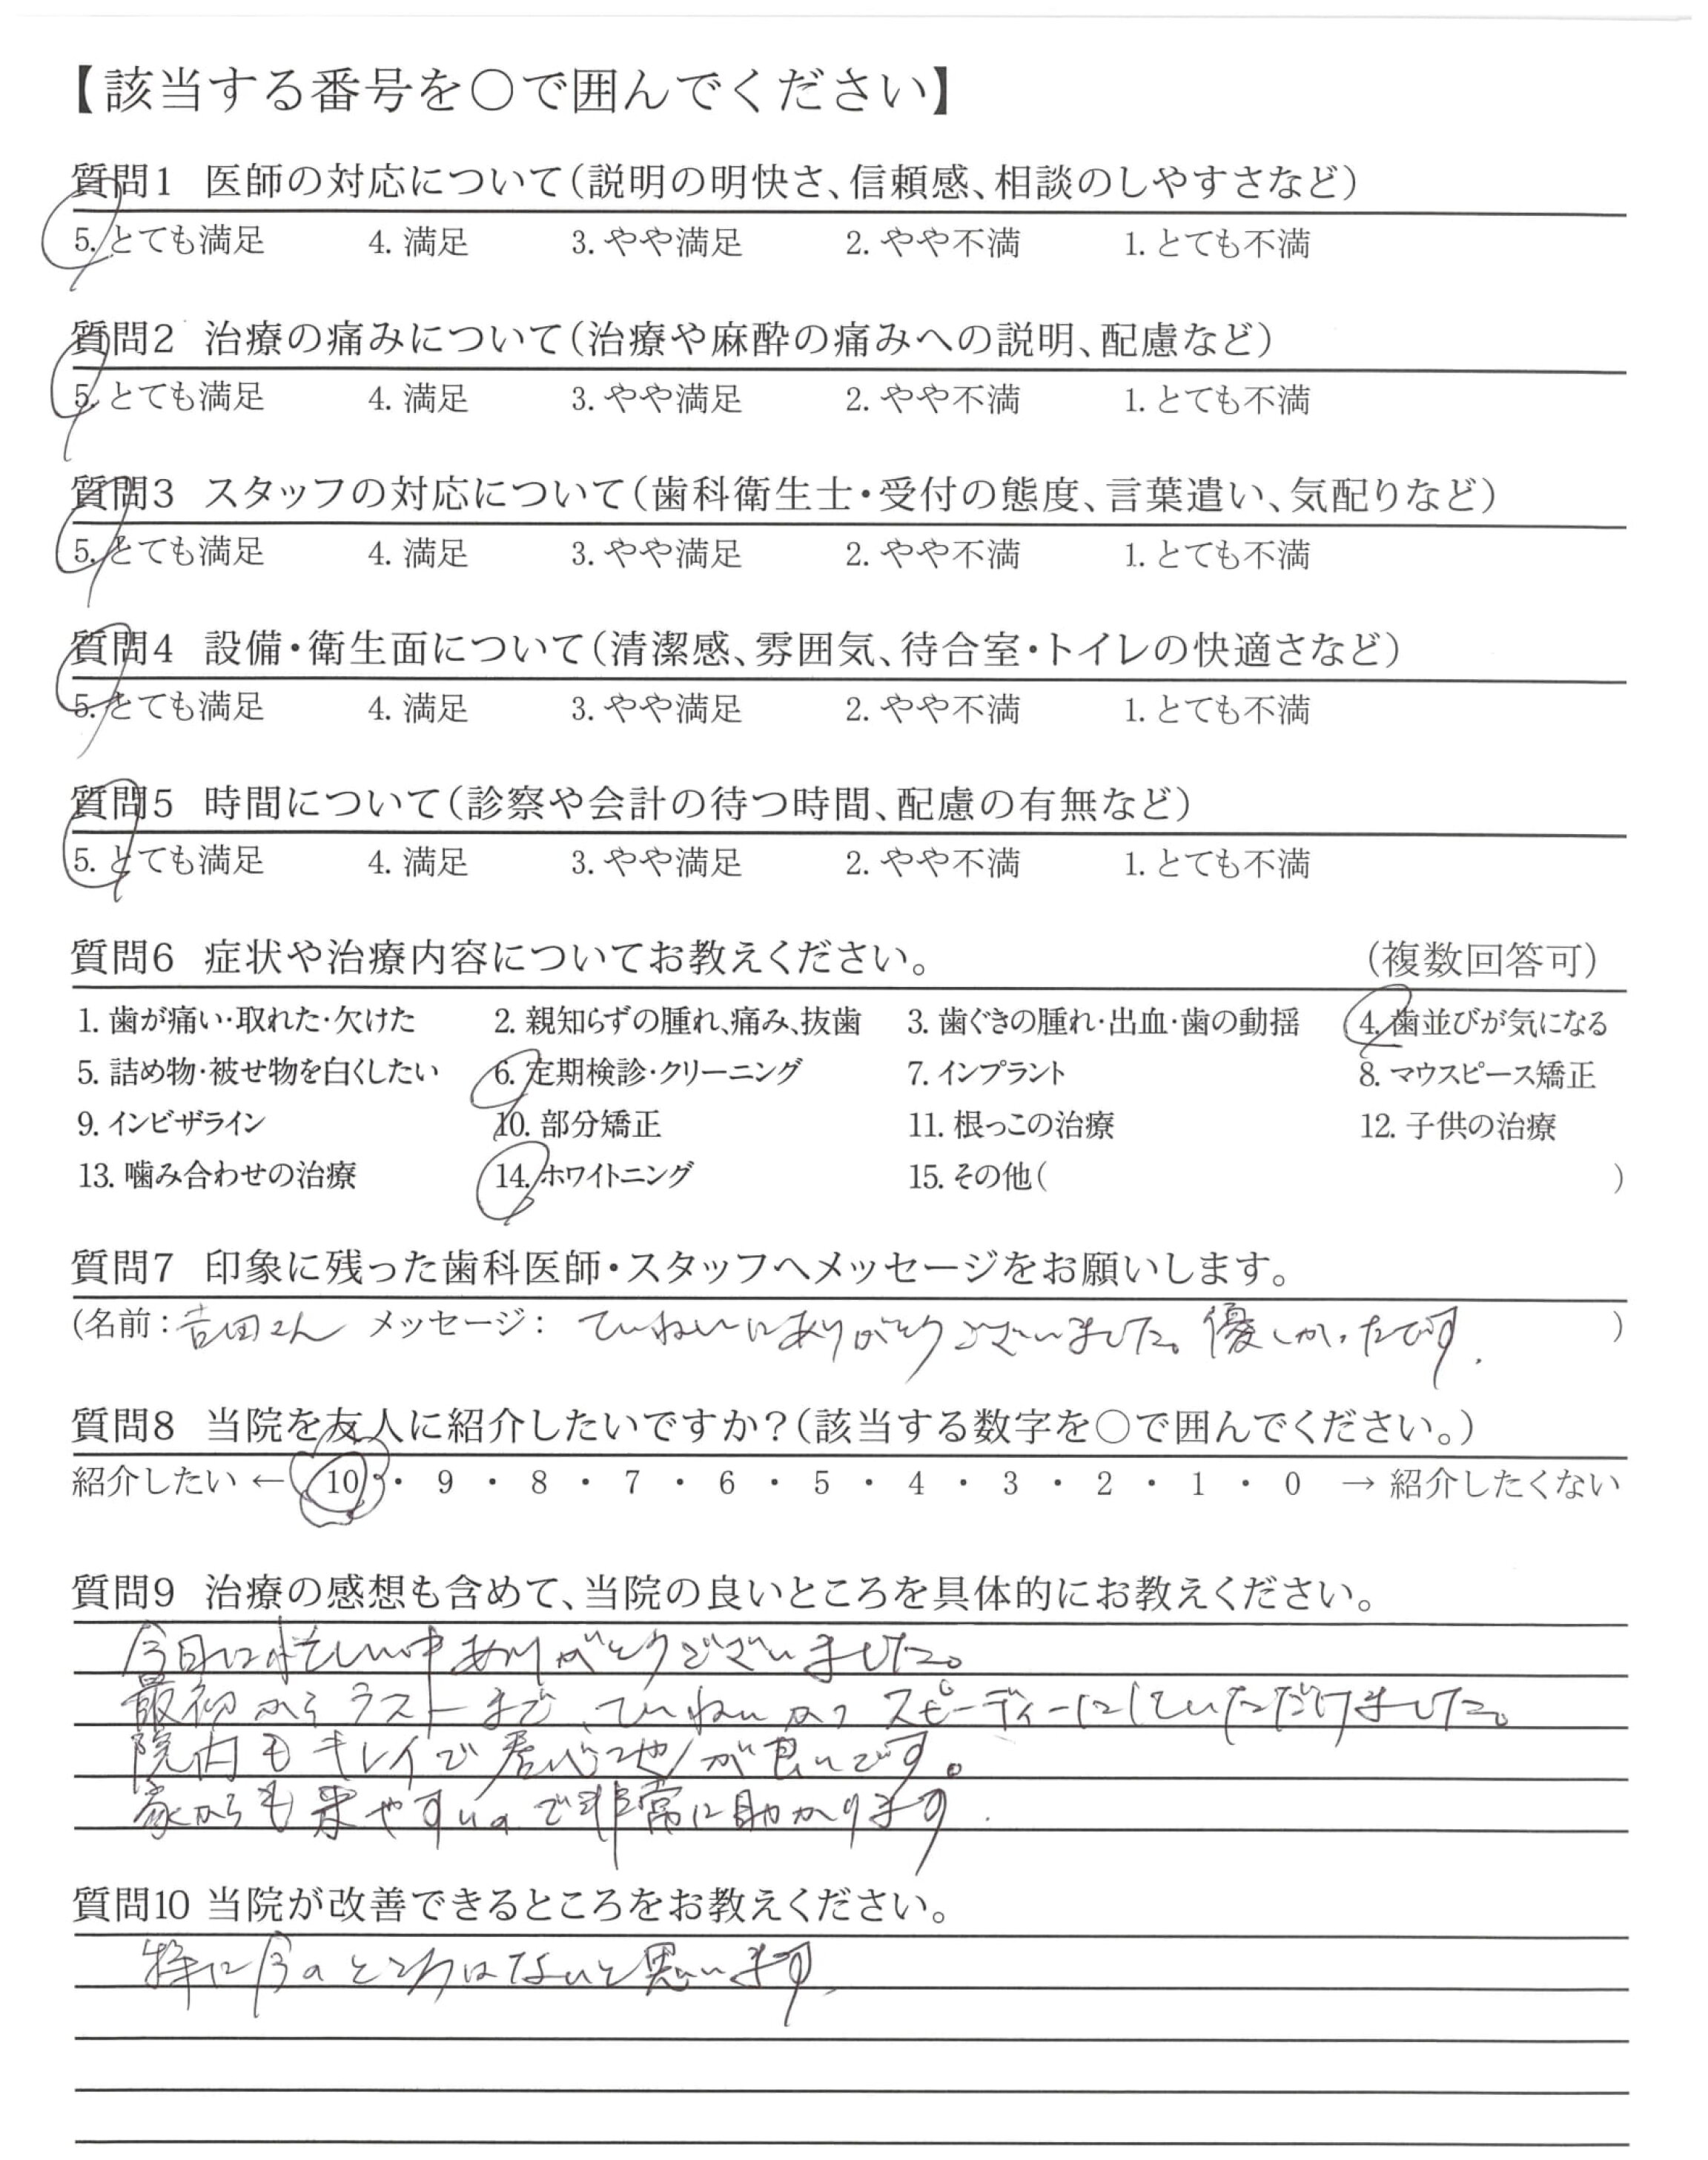 【該当する番号を○で囲んでください】
質問1 医師の対応について(説明の明快さ、信頼感、相談のしやすさなど)
5. とても満足 4. 満足 3. やや満足 2. やや不満 1. とても不満
質問2 治療の痛みについて(治療や麻酔の痛みへの説明、配慮など)
5. とても満足 4. 満足 3. やや満足 2. やや不満 1. とても不満
質問3 スタッフの対応について(歯科衛生士・受付の態度、言葉遣い、気配りなど)
5. とても満足 4. 満足 3. やや満足 2. やや不満 1. とても不満
質問4 設備・衛生面について(清潔感、雰囲気、待合室・トイレの快適さなど)
5. とても満足 4. 満足 3. やや満足 2. やや不満 1. とても不満
質問5 時間について(診察や会計の待つ時間、配慮の有無など)
5. とても満足 4. 満足 3. やや満足 2. やや不満 1. とても不満
質問6 症状や治療内容についてお教えください。 (複数回答可)
1. 歯が痛い・取れた・欠けた 2. 親知らずの腫れ、痛み、抜歯 3. 歯ぐきの腫れ・出血・歯の動揺 4. 歯並びが気になる
5. 詰め物・被せ物を白くしたい 6. 定期検診・クリーニング 7. インプラント 8. マウスピース矯正
9. インビザライン 10. 部分矯正 11. 根っこの治療 12. 子供の治療
13. 噛み合わせの治療 14. ホワイトニング 15. その他( )
質問7 印象に残った歯科医師・スタッフへメッセージをお願いします。
(名前:吉田さん メッセージ: ていねいにありがとうございました。優しかったです. )
質問8 当院を友人に紹介したいですか?(該当する数字を○で囲んでください。)
紹介したい ← 10 ・ 9 ・ 8 ・ 7 ・ 6 ・ 5 ・ 4 ・ 3 ・ 2 ・ 1 ・ 0 → 紹介したくない
質問9 治療の感想も含めて、当院の良いところを具体的にお教えください。
今日は忙しい中ありがとうございました。
最初からラストまで、ていねいかつスピーディーにしていただけました。
院内もキレイで居心地が良いです。
家からも来やすいので非常に助かります.
質問10 当院が改善できるところをお教えください。
特に今のところはないと思います